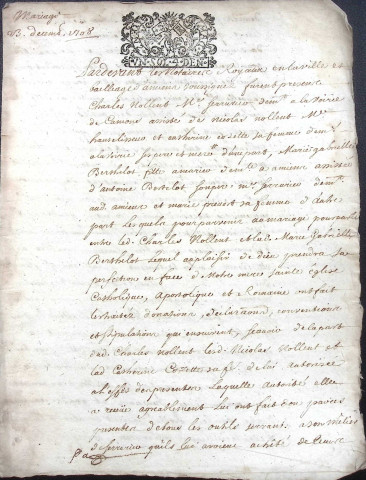 Mariage
13. decemb. 1708
UN. SOL. 4. DEN.
Pardevant les notaires Royaux en la ville et
bailliage d'amiens soussignés furent presens
Charles Nollent Me serrurier demt a la Voirie
de Camons assisté de Nicolas nollent Me
et catherine Cozette sa femme demt
a la Voirie ses pere et mere d'une part, Marie gabrielle
Berthelot fille demte a amiens assistée
d'antoine Bertelot son pere Me serrurier demt
aud amiens et marie sa femme d'autre
part Lesquels pour parvenir au mariage pourparlé
entre led. Charles Nollent et lad. Marie Gabrielle
Berthelot Lequel au plaisir de dieu prendra sa
perfection en face de Notre mere Sainte eglise
Catholique, Apostolique et Romaine ont fait
les traités donations, declarations, conventions
et stipulations qui ensuivent, scavoir de la part
dud. Charles Nollent led. Nicolas Nollent et
lad Catherine Cozette sa fe. de lui autorisée
a l'effet des presentes Laquelle autorité elle
a receue agreablement Lui ont fait don par ces
presentes de tous les outils servant a son metier
de serrurier qu'ils lui avoient acheté de